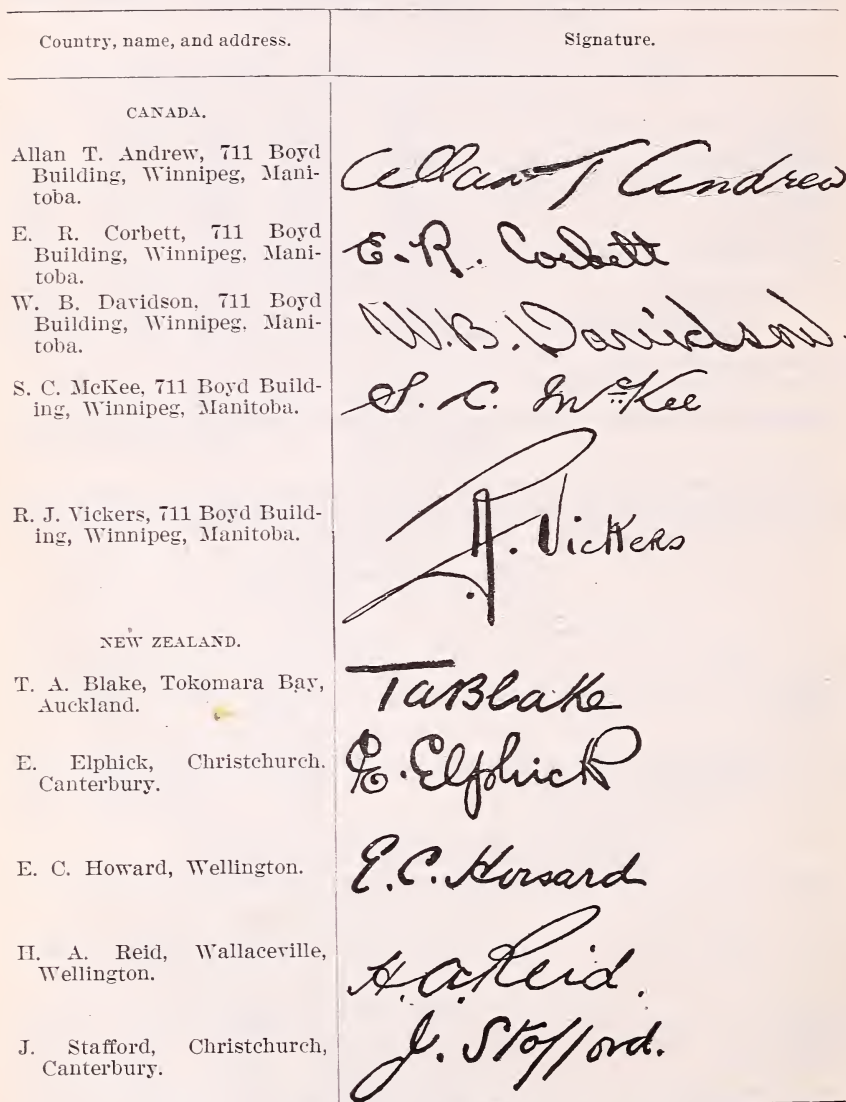 Country, name, and address.
Signature.
CANADA.
Allan T. Andrew, 711 Boyd
Building, Winnipeg, Mani-
toba.
Allan T Andrew
E. R. Corbett, 711 Boyd
Building, Winnipeg, Mani-
toba.
E. R. Corbett
W. B. Davidson, 711 Boyd
Building, Winnipeg, Mani-
toba.
W. B. Davidson.
S. C. McKee, 711 Boyd Build-
ing, Winnipeg, Manitoba.
S. C. McKee
R. J. Vickers, 711 Boyd Build-
ing, Winnipeg, Manitoba.
Vickers
NEW ZEALAND.
T. A. Blake, Tokomara Bay,
Auckland.
TABlake
E. Elphick, Christchurch.
Canterbury.
E. Elphick
E. C. Howard, Wellington.
E. C. Howard
H. A. Reid, Wallaceville,
Wellington.
H. A. Reid.
J. Stafford, Christchurch,
Canterbury.
J. Stafford.